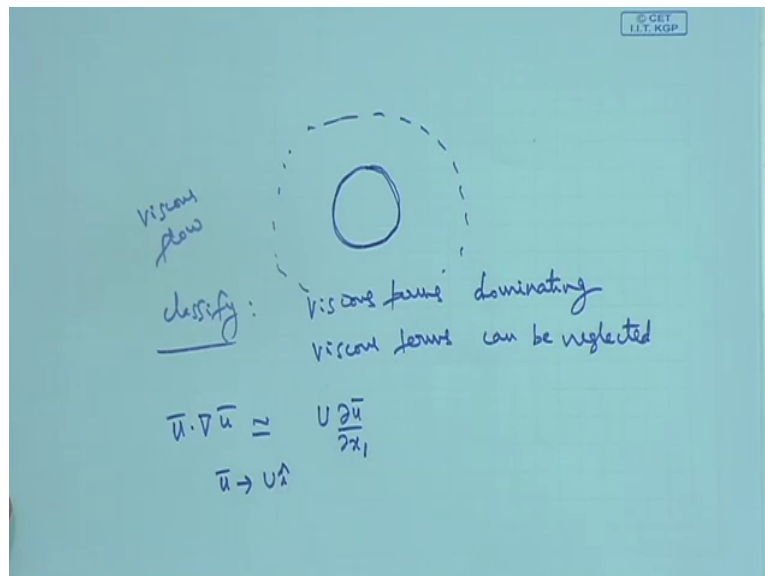 © CET
I.I.T. KGP
viscous
flow
classify : viscous terms dominating
viscous terms can be neglected
ū·∇ū ≃ U ∂ū/∂x₁
ū → U î